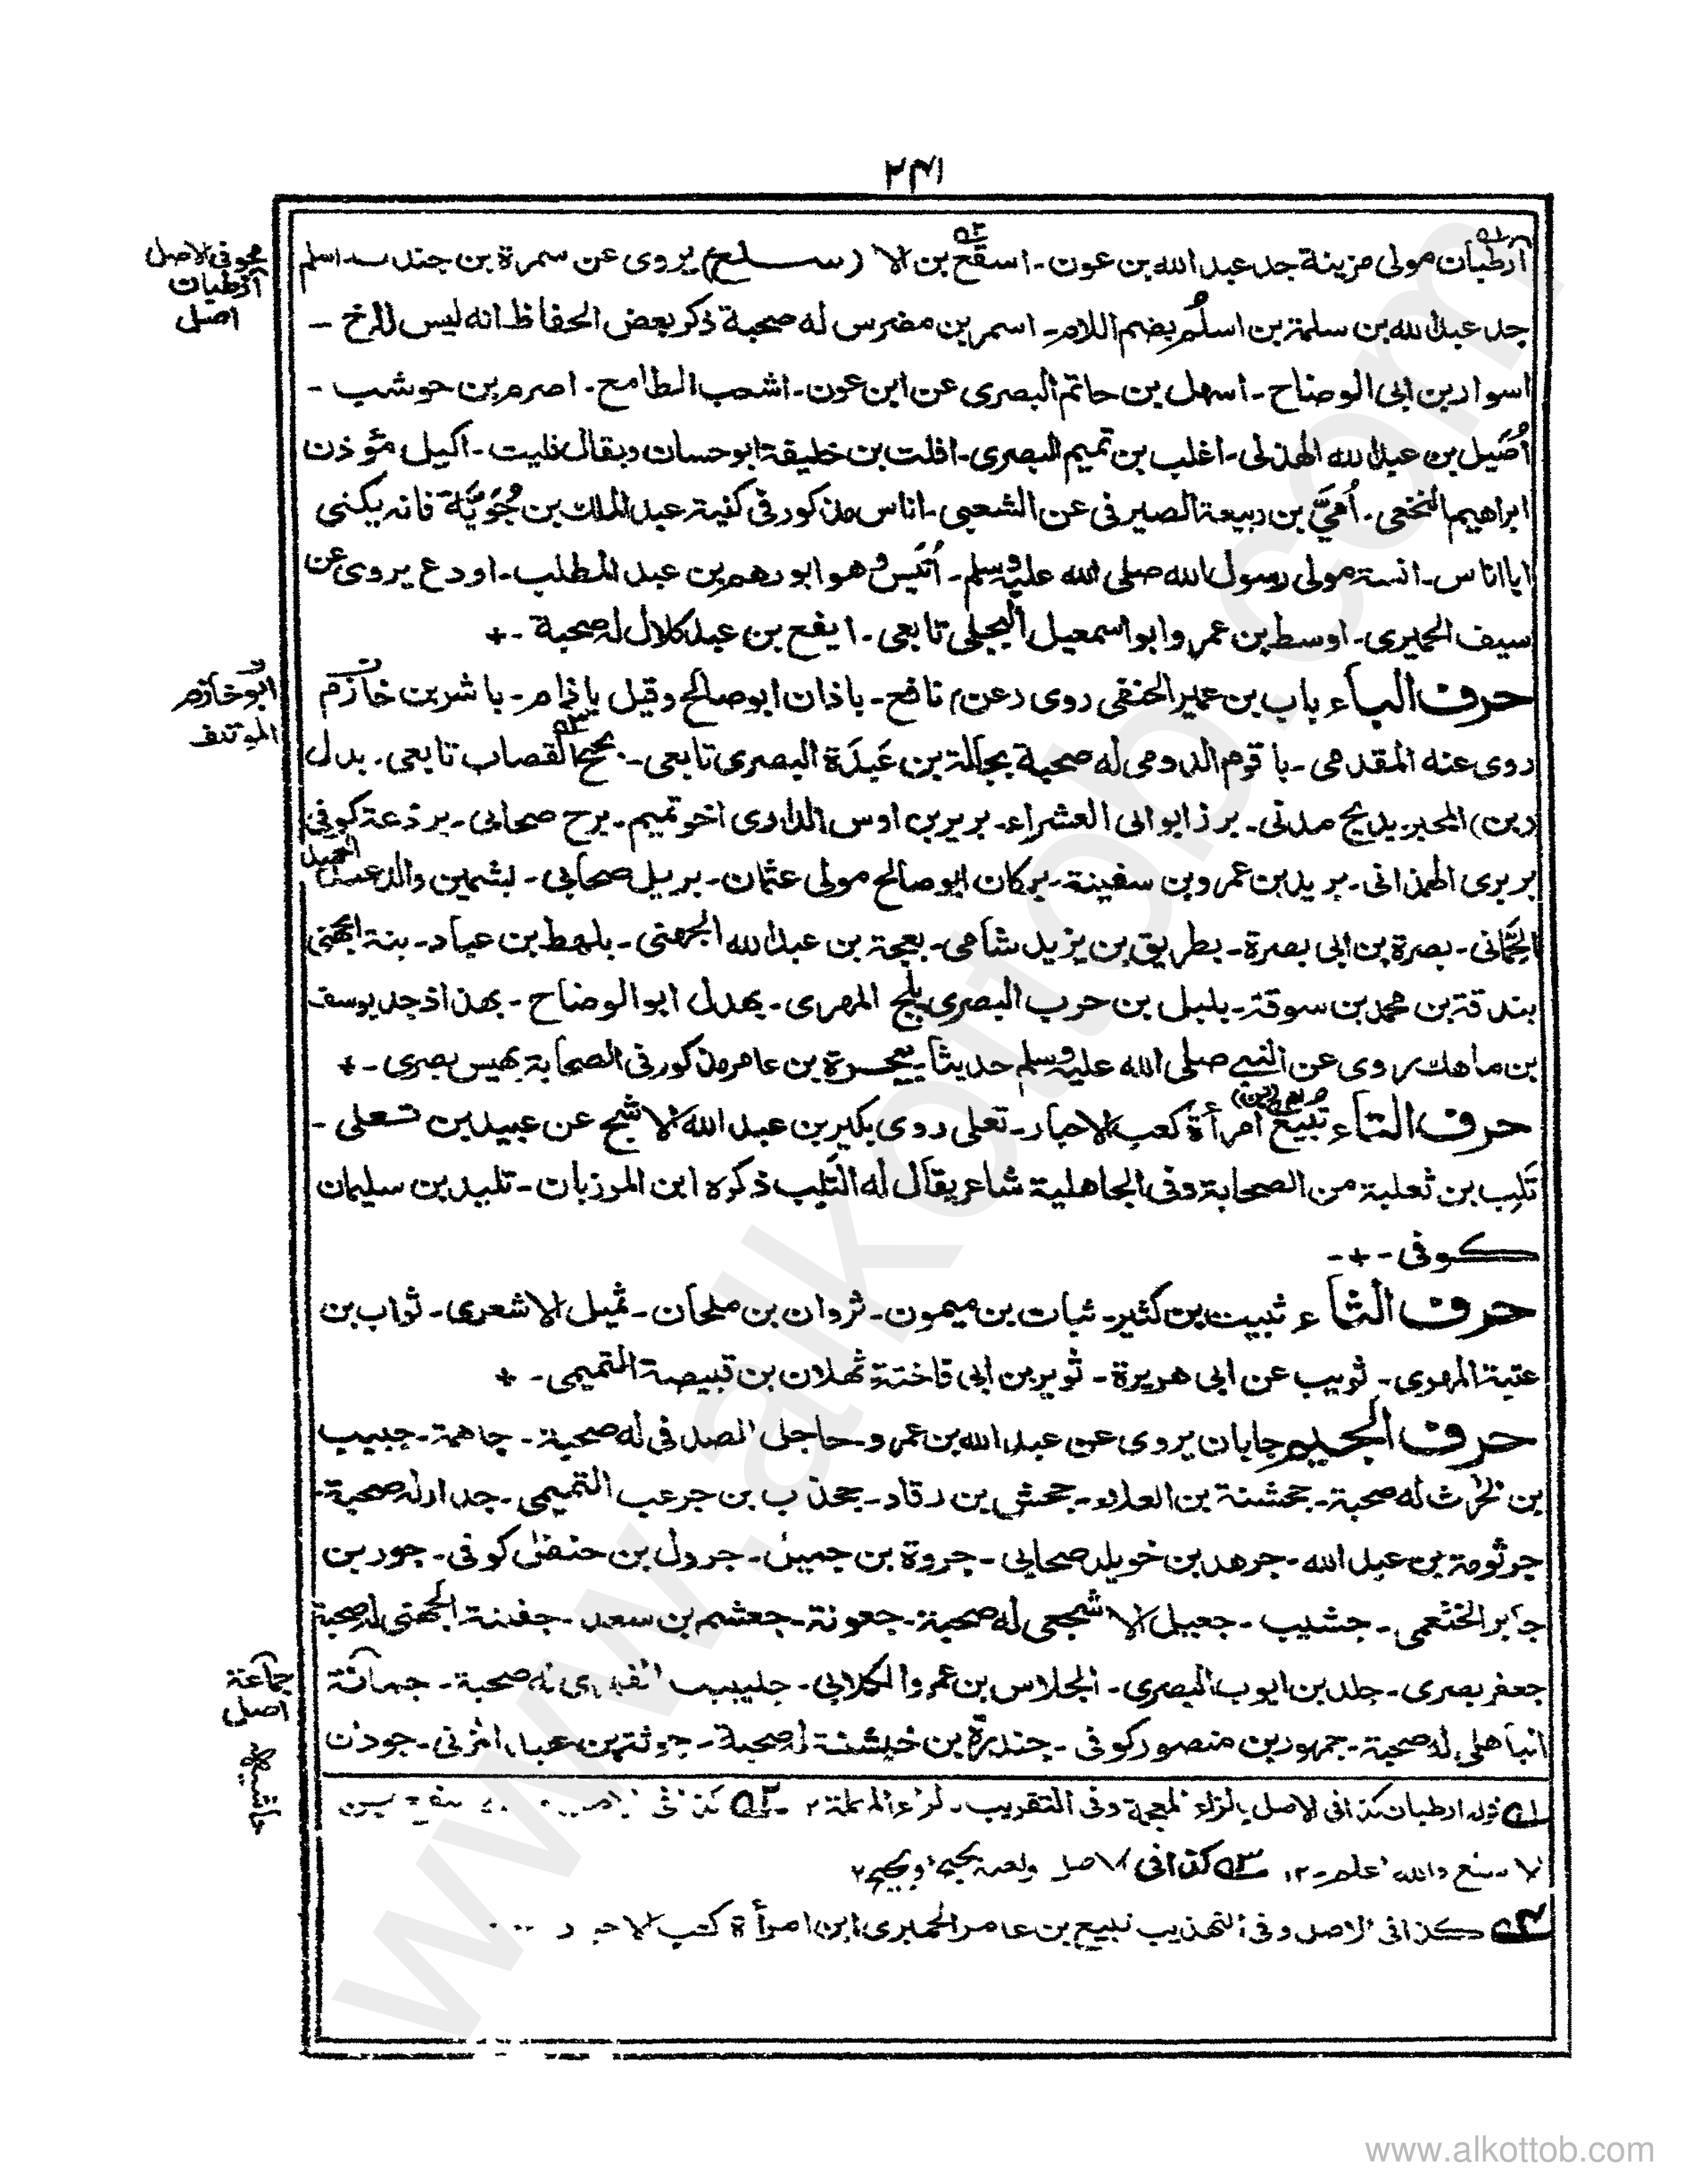 ۲۴۱
آرطبان مولى مزينة جد عبد الله بن عون۔ اسقع بن الا (سلع) يروى عن سمرة بن جندب۔ اسلم
جد عبد الله بن سلمة بن اسلُم بضم اللام۔ اسمر بن مضرس له صحبة ذكر بعض الحفاظ انه ليس للرخ ۔
اسوار بن ابى الوضاح۔ اسهل بن حاتم البصرى عن ابن عون۔ اشعب الطامع۔ اصرم بن حوشب ۔
اُصَيل بن عبد الله الهذلى۔ اغلب بن تميم البصرى۔ افلت بن خليفة ابوحسان ويقال فليت۔ اكيل مؤذن
ابراهيم النخعى۔ اُمَيّ بن ربيعة الصيرفى عن الشعبى۔ اناس مذكور فى كنية عبد الملك بن جُوَيَّة فانه يكنى
ابا اناس۔ انسة مولى رسول الله صلى الله عليه وسلم۔ اُنَيس وهو ابو رهم بن عبد المطلب۔ اودع يروى عن
سيف الحميرى۔ اوسط بن عمر وابو اسمعيل البجلى تابعى۔ ايفع بن عبد كلال له صحبة ۔+
حرف الباء باب بن عمير الحنفى روى (عن) نافع۔ باذان ابو صالح وقيل باذام۔ باشر بن خازم
روى عنه المقدمى۔ باقوم الدومى له صحبة بجالة بن عَبَدَة البصرى تابعى۔ بحبح القصاب تابعى۔ بدل
(بن) المحبر۔ بديح مدنى۔ برز ابو ابى العشراء۔ برير بن اوس الدارى اخو تميم۔ برح صحابى۔ برذعة كوفى
بربرى الهمذانى۔ بريد بن عمرو بن سفينة۔ بركان ابو صالح مولى عثمان۔ بريل صحابى۔ بشمين والد عبد الحميد
الحِمّانى۔ بصرة بن ابى بصرة۔ بطريق بن يزيد شامى۔ بعجة بن عبد الله الجهنى۔ بلهط بن عباد۔ بنة الجهنى
بندقة بن محمد بن سوقة۔ بلبل بن حرب البصرى بلج المهرى۔ بهدل ابو الوضاح۔ بهذاذ جد يوسف
بن ماهك روى عن النبى صلى الله عليه وسلم حديثا۔ بيحرة بن عامر مذكور فى الصحابة بهيس بصرى ۔+
حرف التاء تبيع (بن) امرأة كعب الاحبار۔ تعلى روى بكير بن عبد الله الاشج عن عبيد بن تعلى ۔
تَلِب بن ثعلبة من الصحابة وفى الجاهلية شاعر يقال له التَلِب ذكره ابن المرزبان۔ تليد بن سليمان
كوفى ۔+۔
حرف الثاء ثبيت بن كثير۔ ثبات بن ميمون۔ ثروان بن ملحان۔ ثميل الاشعرى۔ ثواب بن
عتبة المهرى۔ ثويب عن ابى هريرة۔ ثوير بن ابى فاختة ثهلان بن قبيصة التميمى۔ +
حرف الجيم جابان يروى عن عبد الله بن عمرو۔ حاجل الصدفى له صحبة۔ جاهمة۔ جبيب
بن الحرث له صحبة۔ جحشنة بن العلاء۔ جحش بن رقاد۔ جحذب بن جرعب التميمى۔ جدار له صحبة۔
جرثومة بن عبد الله۔ جرهد بن خويلد صحابى۔ جروة بن جميل۔ جرول بن حنفل كوفى۔ جور بن
جابر الخثعمى۔ جشيب۔ جعيل الاشجعى له صحبة۔ جعونة۔ جعشم بن سعد۔ جفينة الجهنى له صحبة
جعفر بصرى۔ جلد بن ايوب البصرى۔ الجلاس بن عمرو الكلابى۔ جليبيب الفهرى له صحبة۔ جمانة
الباهلى له صحبة۔ جمهور بن منصور كوفى۔ جندرة بن خيشنة له صحبة۔ جوثة بن عبيد المزنى۔ جودان
محو فى الاصل
آرطبان
اصل
ابو خازم
المؤتلف
جماعة
اصل
حاشية
له قوله ارطبان كذا فى الاصل بالزاء المعجمة وفى التقريب۔ لراء المهملة ۲ ۔ كذا فى
لا سقع والله اعلم ۔۱۲ كذا فى الاصل ولعله
كذا فى الاصل وفى التهذيب تبيع بن عامر الحميرى ابن امرأة كعب الاحبار
www.alkottob.com
www.alkottob.com